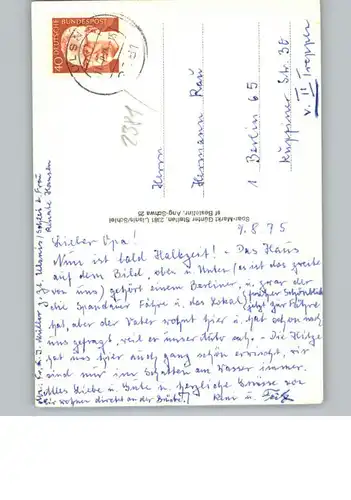 40
DEUTSCHE BUNDESPOST
2381
Herrn
Hermann Rau
1 Berlin 65
Kuppiner Str. 30
v. II Treppen
Spar-Markt Günter Steffen, 2381 Ulsnis/Schlei
9.8.75
Lieber Opa!
Nun ist bald Halbzeit! - Das Haus
auf dem Bild, oben u. unten (es ist das zweite
von uns) gehört einem Berliner, u. zwar der
die Spandauer Fähre u. das Lokal (früher Schönblick jetzt zur Fähre
hat, aber der Vater wohnt hier u. hat schon nach
uns gefragt, weil er unser Auto sah. - Die Hitze
hat uns hier auch ganz schön erwischt, wir
sind nur im Schatten am Wasser immer.
Alles Liebe u. Gute u. herzliche Grüsse von
Wir wohnen direkt an der Brücke!
u. Fritz
Müller z. Zt. Ulsnis/Schlei b. Frau
Renate Hansen